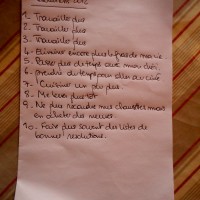 1. Travailler plus
2. Travailler plus
3. Travailler plus
4. Eliminer encore plus
5. Passer plus de temps avec mon chéri.
6. prendre du temps pour aller au ciné
7. Cuisiner un peu plus.
8. Me lever plus tôt
9. Ne plus racheter mes chaussettes mais
en acheter des neuves.
10. Faire plus souvent des listes de
bonnes résolutions.